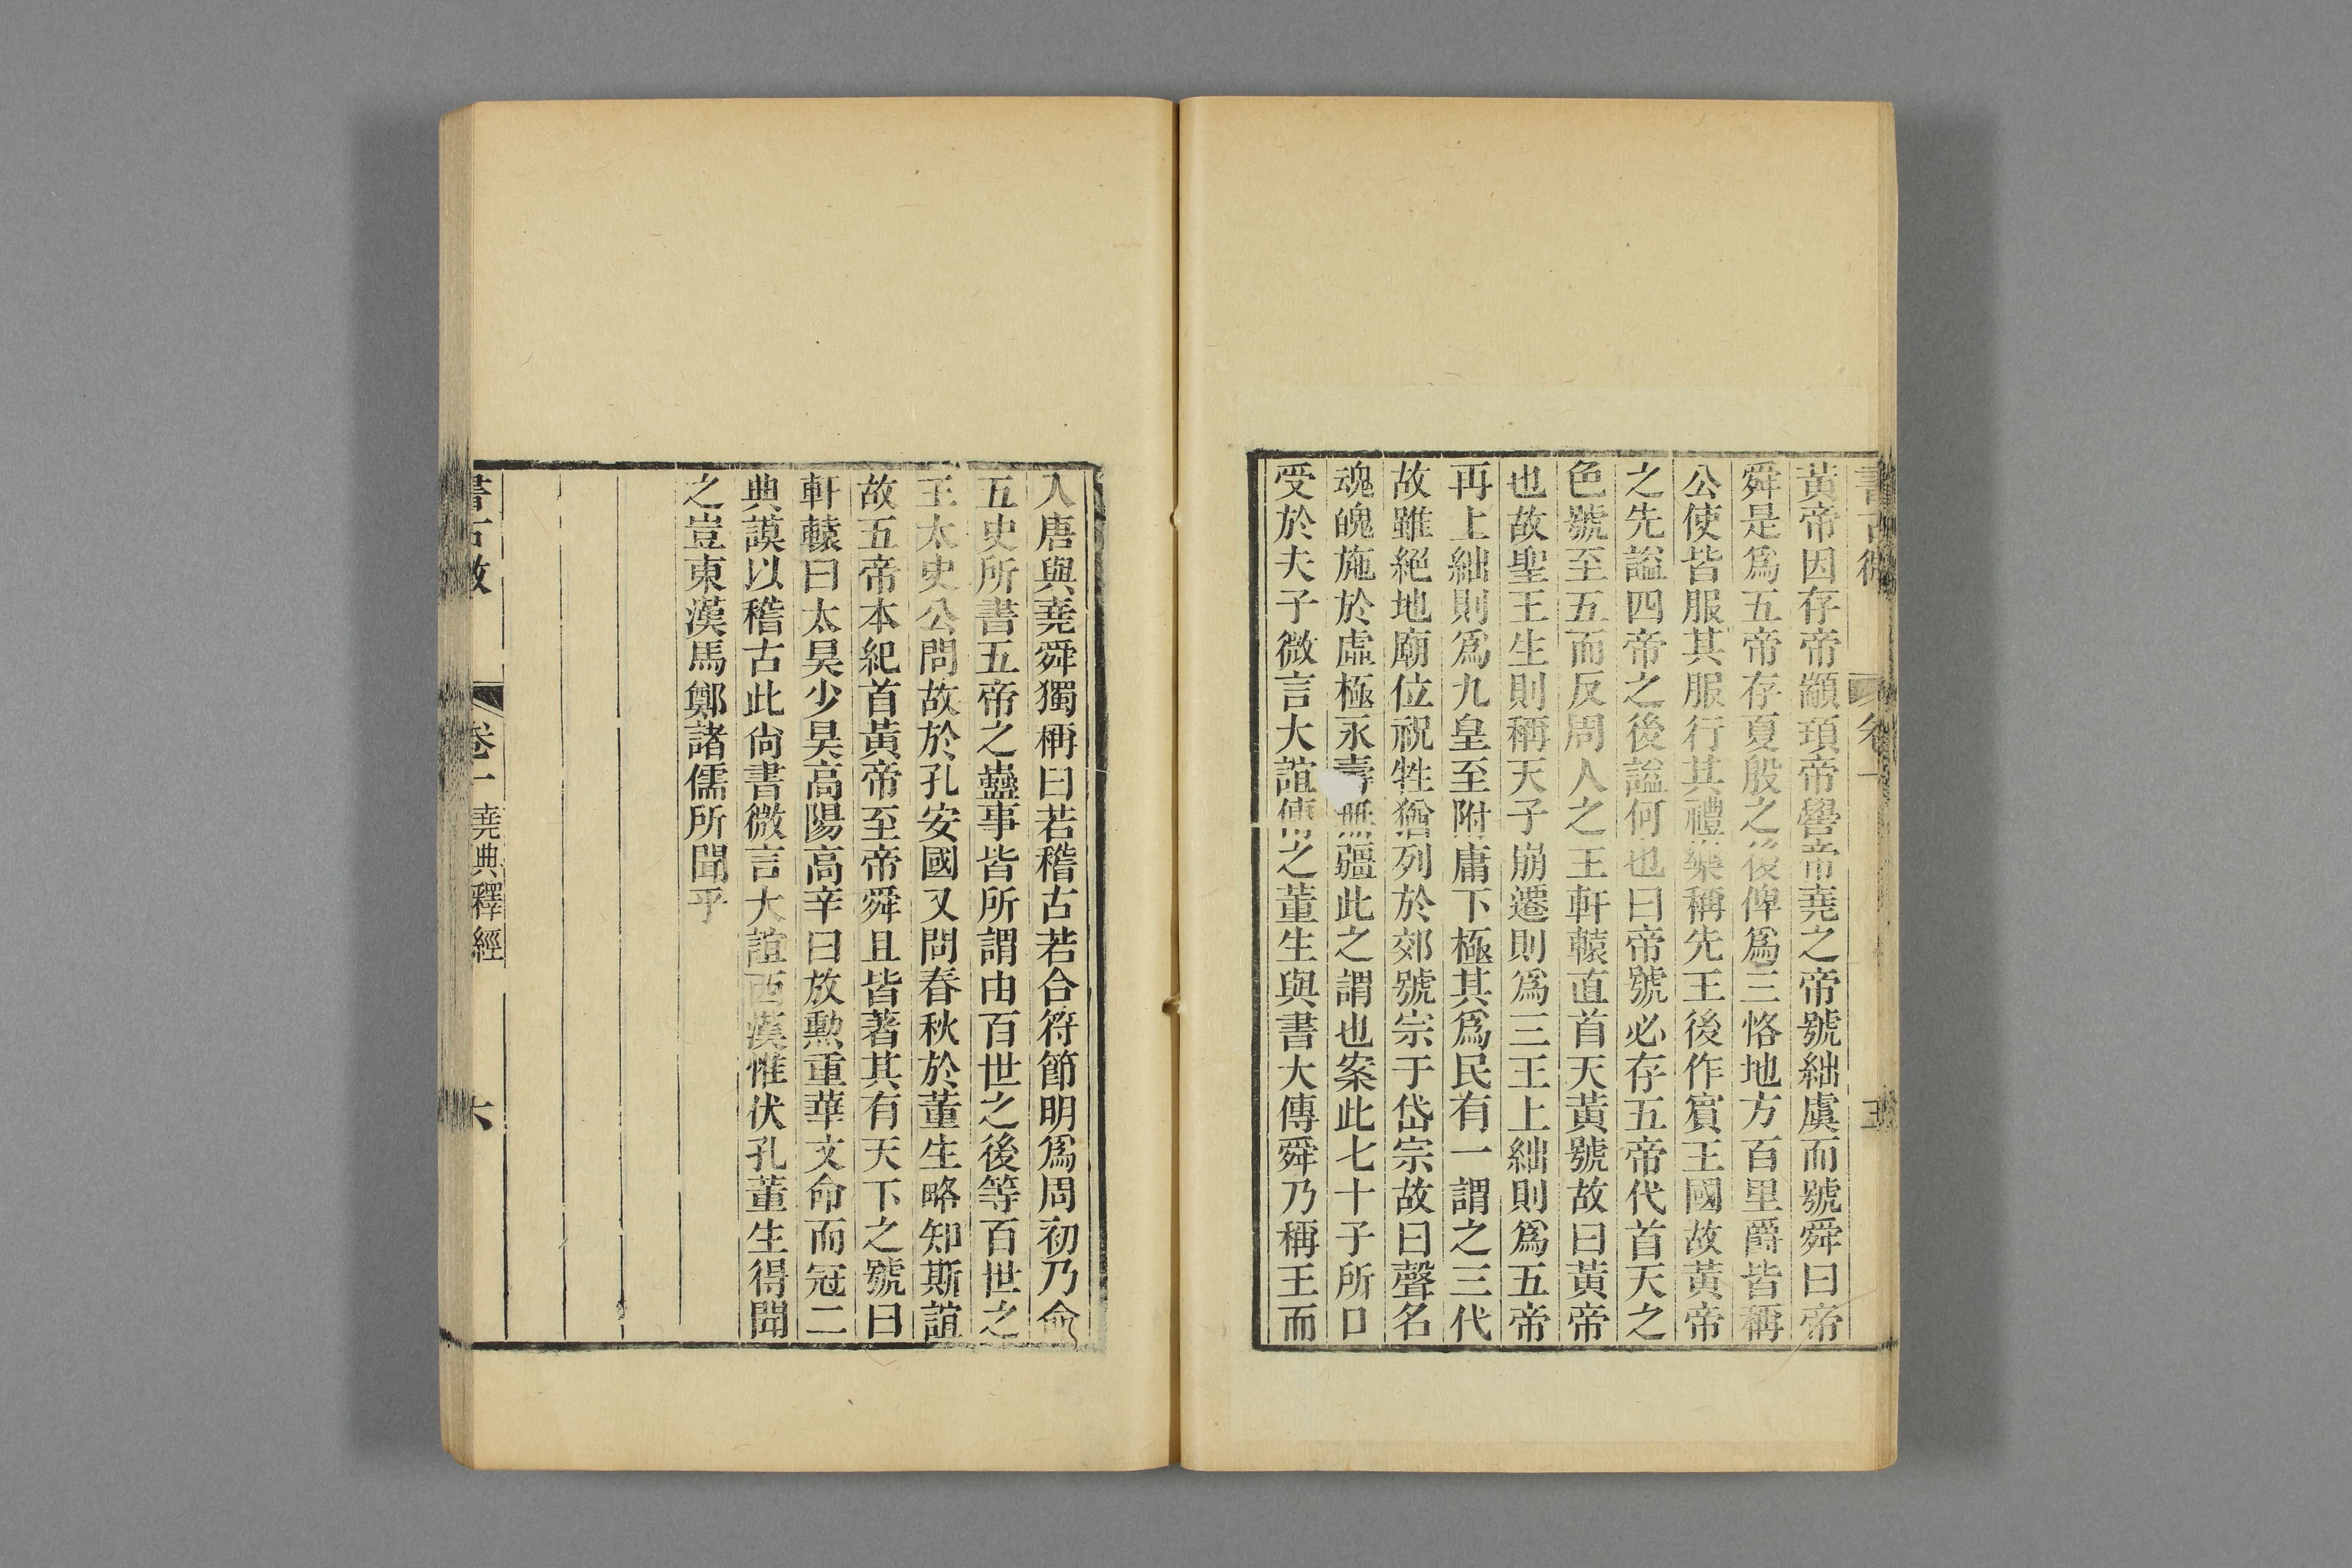 書古微
卷一
五
黃帝因存帝顓頊帝嚳帝堯之帝號絀虞而號舜曰帝
舜是爲五帝存夏殷之後俾爲三恪地方百里爵皆稱
公使皆服其服行其禮樂稱先王後作賓王國故黃帝
之先謚四帝之後謚何也曰帝號必存五帝代首天之
色號至五而反周人之王軒轅直首天黃號故曰黃帝
也故聖王生則稱天子崩遷則爲三王上絀則爲五帝
再上絀則爲九皇至附庸下極其爲民有一謂之三代
故雖絕地廟位祝牲猶列於郊號宗于岱宗故曰聲名
魂魄施於虛極永壽無疆此之謂也案此七十子所口
受於夫子微言大誼傳之董生與書大傳舜乃稱王而
入唐與堯舜獨稱曰若稽古若合符節明爲周初乃命
五史所書五帝之蠱事皆所謂由百世之後等百世之
王太史公問故於孔安國又問春秋於董生略知斯誼
故五帝本紀首黃帝至帝舜且皆著其有天下之號曰
軒轅曰太昊少昊高陽高辛曰放勳重華文命而冠二
典謨以稽古此尙書微言大誼西漢惟伏孔董生得聞
之豈東漢馬鄭諸儒所聞乎
書古微
卷一 堯典釋經
六